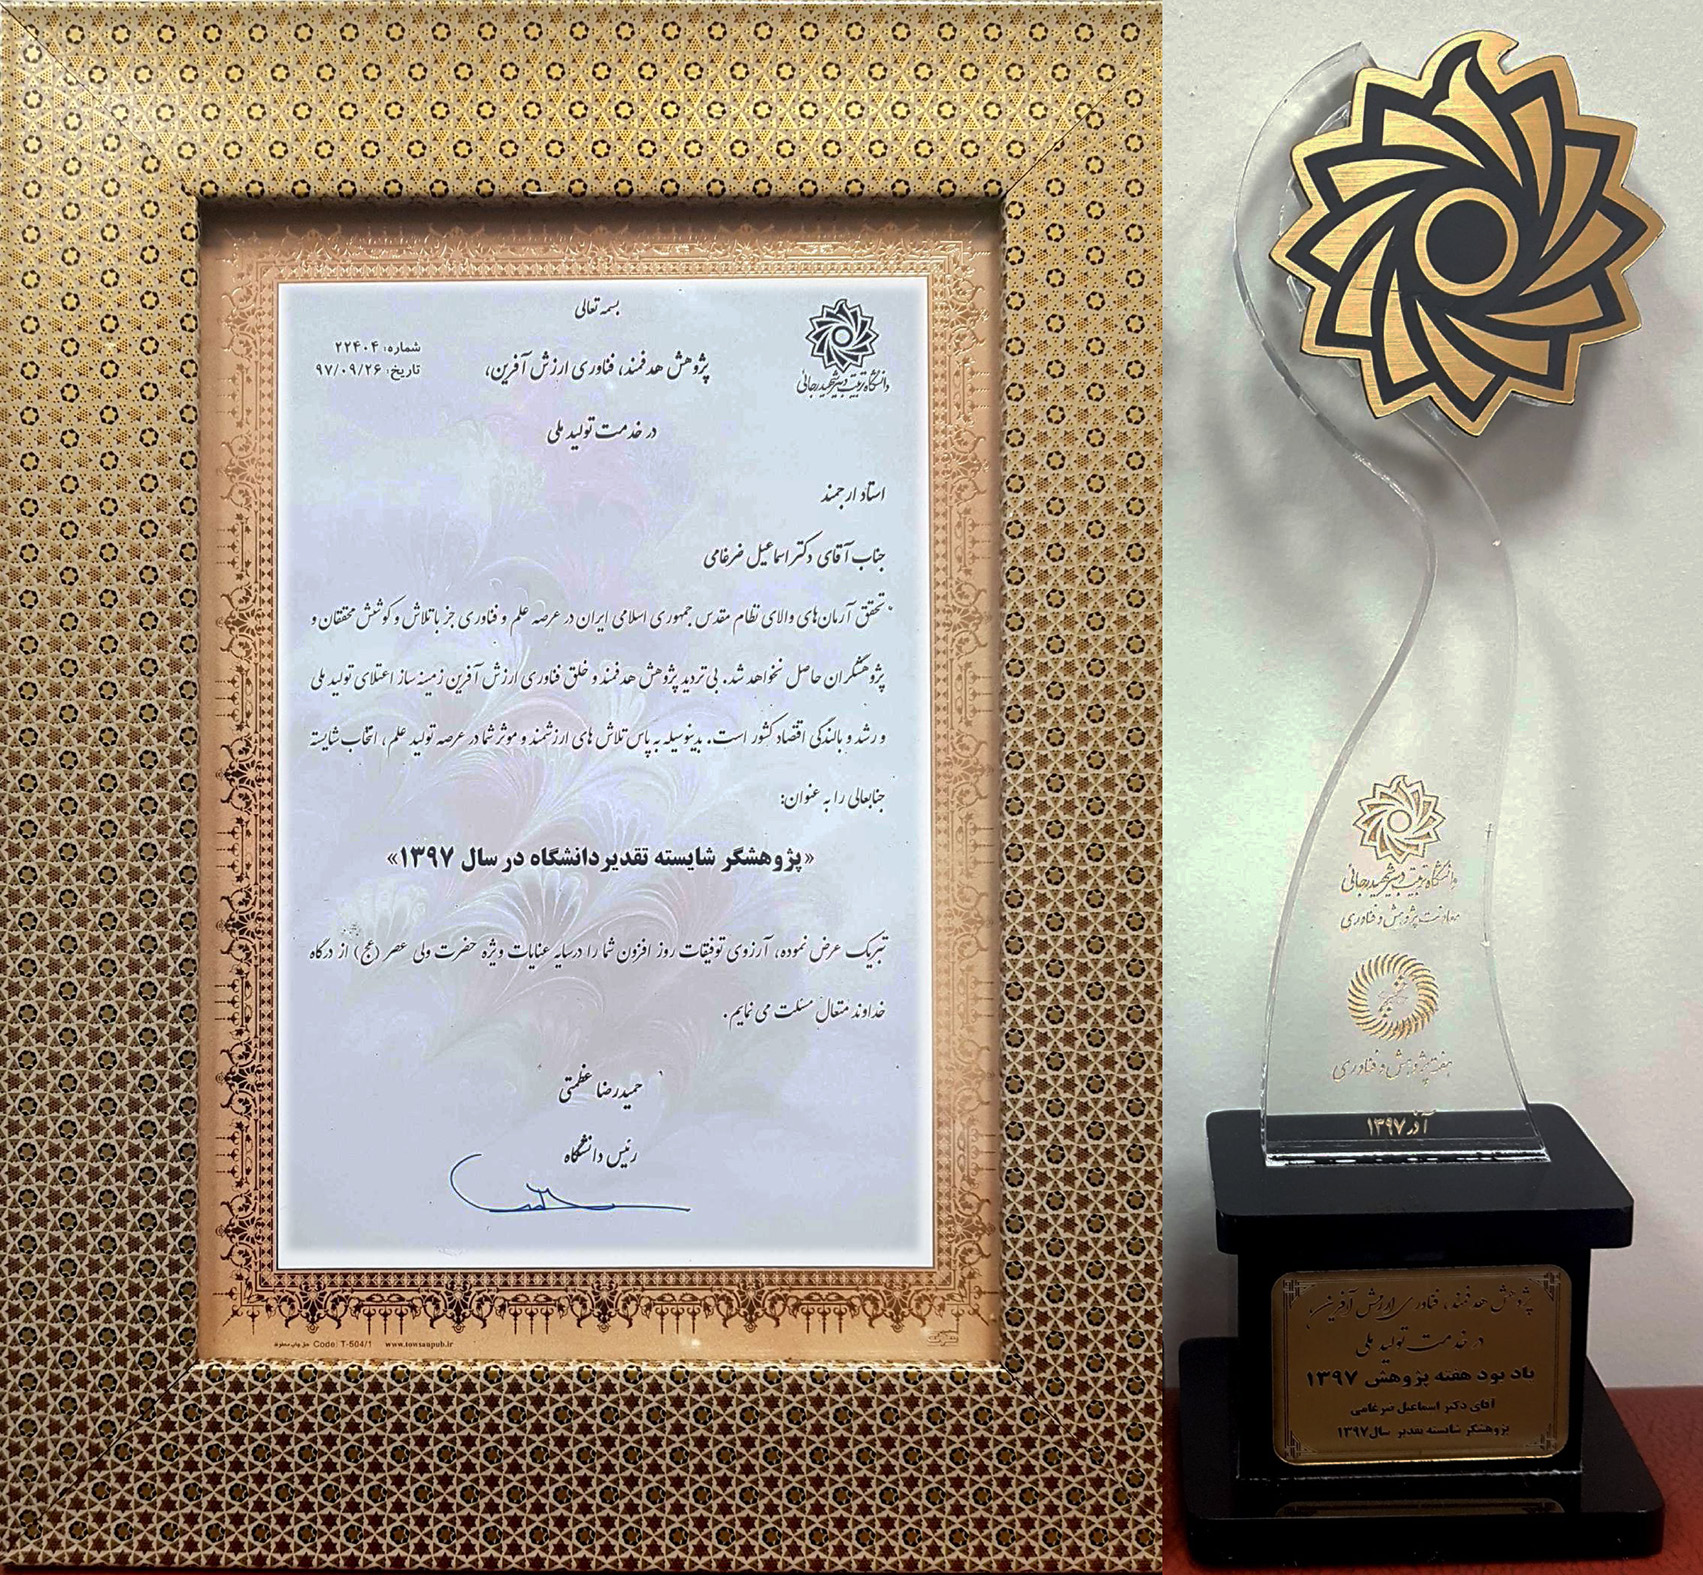 بسمه تعالی
دانشگاه تربیت دبیر شهید رجایی
شماره: ۲۲۴۰۴
تاریخ: ۹۷/۰۹/۲۶
پژوهش هدفمند، فناوری ارزش آفرین،
در خدمت تولید ملی
استاد ارجمند
جناب آقای دکتر اسماعیل ضرغامی
تحقق آرمان‌های والای نظام مقدس جمهوری اسلامی ایران در عرصه علم و فناوری جز با تلاش و کوشش محققان و
پژوهشگران حاصل نخواهد شد. بی تردید پژوهش هدفمند و خلق فناوری ارزش آفرین زمینه ساز اعتلای تولید ملی
و رشد و بالندگی اقتصاد کشور است. بدینوسیله به پاس تلاش های ارزشمند و موثر شما در عرصه تولید علم، انتخاب شایسته
جنابعالی را به عنوان:
«پژوهشگر شایسته تقدیر دانشگاه در سال ۱۳۹۷»
تبریک عرض نموده، آرزوی توفیقات روز افزون شما را درسایه عنایات ویژه حضرت ولی عصر (عج) از درگاه
خداوند متعال مسئلت می نمایم.
حمیدرضا عظمتی
رئیس دانشگاه
Code: T-504/1 www.towsanpub.ir
دانشگاه تربیت دبیر شهید رجایی
معاونت پژوهش و فناوری
هفته پژوهش و فناوری
آذر ۱۳۹۷
پژوهش هدفمند، فناوری ارزش آفرین،
در خدمت تولید ملی
یاد بود هفته پژوهش ۱۳۹۷
آقای دکتر اسماعیل ضرغامی
پژوهشگر شایسته تقدیر سال ۱۳۹۷